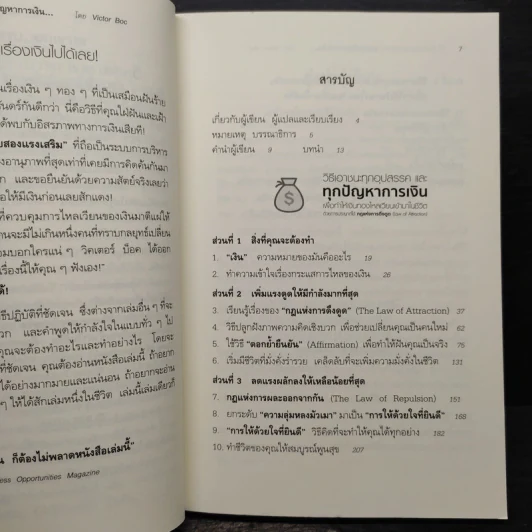 ญหาการเงิน... โดย Victor Boc
เรื่องเงินไปได้เลย!
นเรื่องเงิน ๆ ทอง ๆ ที่เป็นเสมือนฝันร้าย
นตร์กันดีกว่า นี่คือวิธีที่คุณใฝ่ฝันและเฝ้า
ด้พบกับอิสรภาพทางการเงินเสียที!
บสองแรงเสริม” ที่ถือเป็นระบบการบริหาร
งอานุภาพที่สุดเท่าที่เคยมีการคิดค้นกันมา
และขอยืนยันด้วยความสัตย์จริงเลยว่า
อให้มีเงินก่อนเลยสักแดง!
ที่ควบคุมการไหลเวียนของเงินมาตีแผ่ให้
นจะมีไม่เกินหนึ่งคนที่ทราบกลยุทธ์เปลี่ยน
อมบอกใครแน่ ๆ วิคเตอร์ บ็อค ได้ออก
เรื่องนี้ให้คุณ ๆ ฟังเอง!”
ด้!
ธีปฏิบัติที่ชัดเจน ซึ่งต่างจากเล่มอื่น ๆ ที่จะ
วก และคำพูดให้กำลังใจในแบบทั่ว ๆ ไป
คุณจะต้องทำอะไรและทำอย่างไร โดยจะ
ที่ชัดเจน คุณต้องอ่านหนังสือเล่มนี้ ถ้าอยาก
ได้อย่างมากมายและแน่นอน ถ้าอยากจะอ่าน
ๆ ให้ได้สักเล่มหนึ่งในชีวิต เล่มนี้เล่มเดียวก็
น ก็ต้องไม่พลาดหนังสือเล่มนี้”
ess Opportunities Magazine
7
สารบัญ
เกี่ยวกับผู้เขียน ผู้แปลและเรียบเรียง 4
หมายเหตุ บรรณาธิการ 5
คำนำผู้เขียน 9 บทนำ 13
วิธีเอาชนะทุกอุปสรรค และ
ทุกปัญหาการเงิน
เพื่อทำให้เงินทองไหลเวียนเข้ามาในชีวิต
(Law of Attraction)
ส่วนที่ 1 สิ่งที่คุณจะต้องทำ
1. “เงิน” ความหมายของมันคืออะไร 19
2. ทำความเข้าใจเรื่องกระแสการไหลของเงิน 26
ส่วนที่ 2 เพิ่มแรงดูดให้มีกำลังมากที่สุด
3. เรียนรู้เรื่องของ “กฎแห่งการดึงดูด” (The Law of Attraction) 37
4. วิธีปลูกฝังภาพความคิดเชิงบวก เพื่อช่วยเปลี่ยนคุณเป็นคนใหม่ 62
5. ใช้วิธี “ตอกย้ำยืนยัน” (Affirmation) เพื่อทำให้ฝันคุณเป็นจริง 75
6. เริ่มมีชีวิตที่มั่งคั่งร่ำรวย เคล็ดลับที่จะเพิ่มความมั่งคั่งในชีวิต 131
ส่วนที่ 3 ลดแรงผลักลงให้เหลือน้อยที่สุด
7. กฎแห่งการผละออกจากกัน (The Law of Repulsion) 151
8. ยกระดับ “ความลุ่มหลงมัวเมา” มาเป็น “การให้ด้วยใจที่ยินดี” 168
9. “การให้ด้วยใจที่ยินดี” วิธีคิดที่จะทำให้คุณได้ทุกอย่าง 182
10. ทำชีวิตของคุณให้สมบูรณ์พูนสุข 207